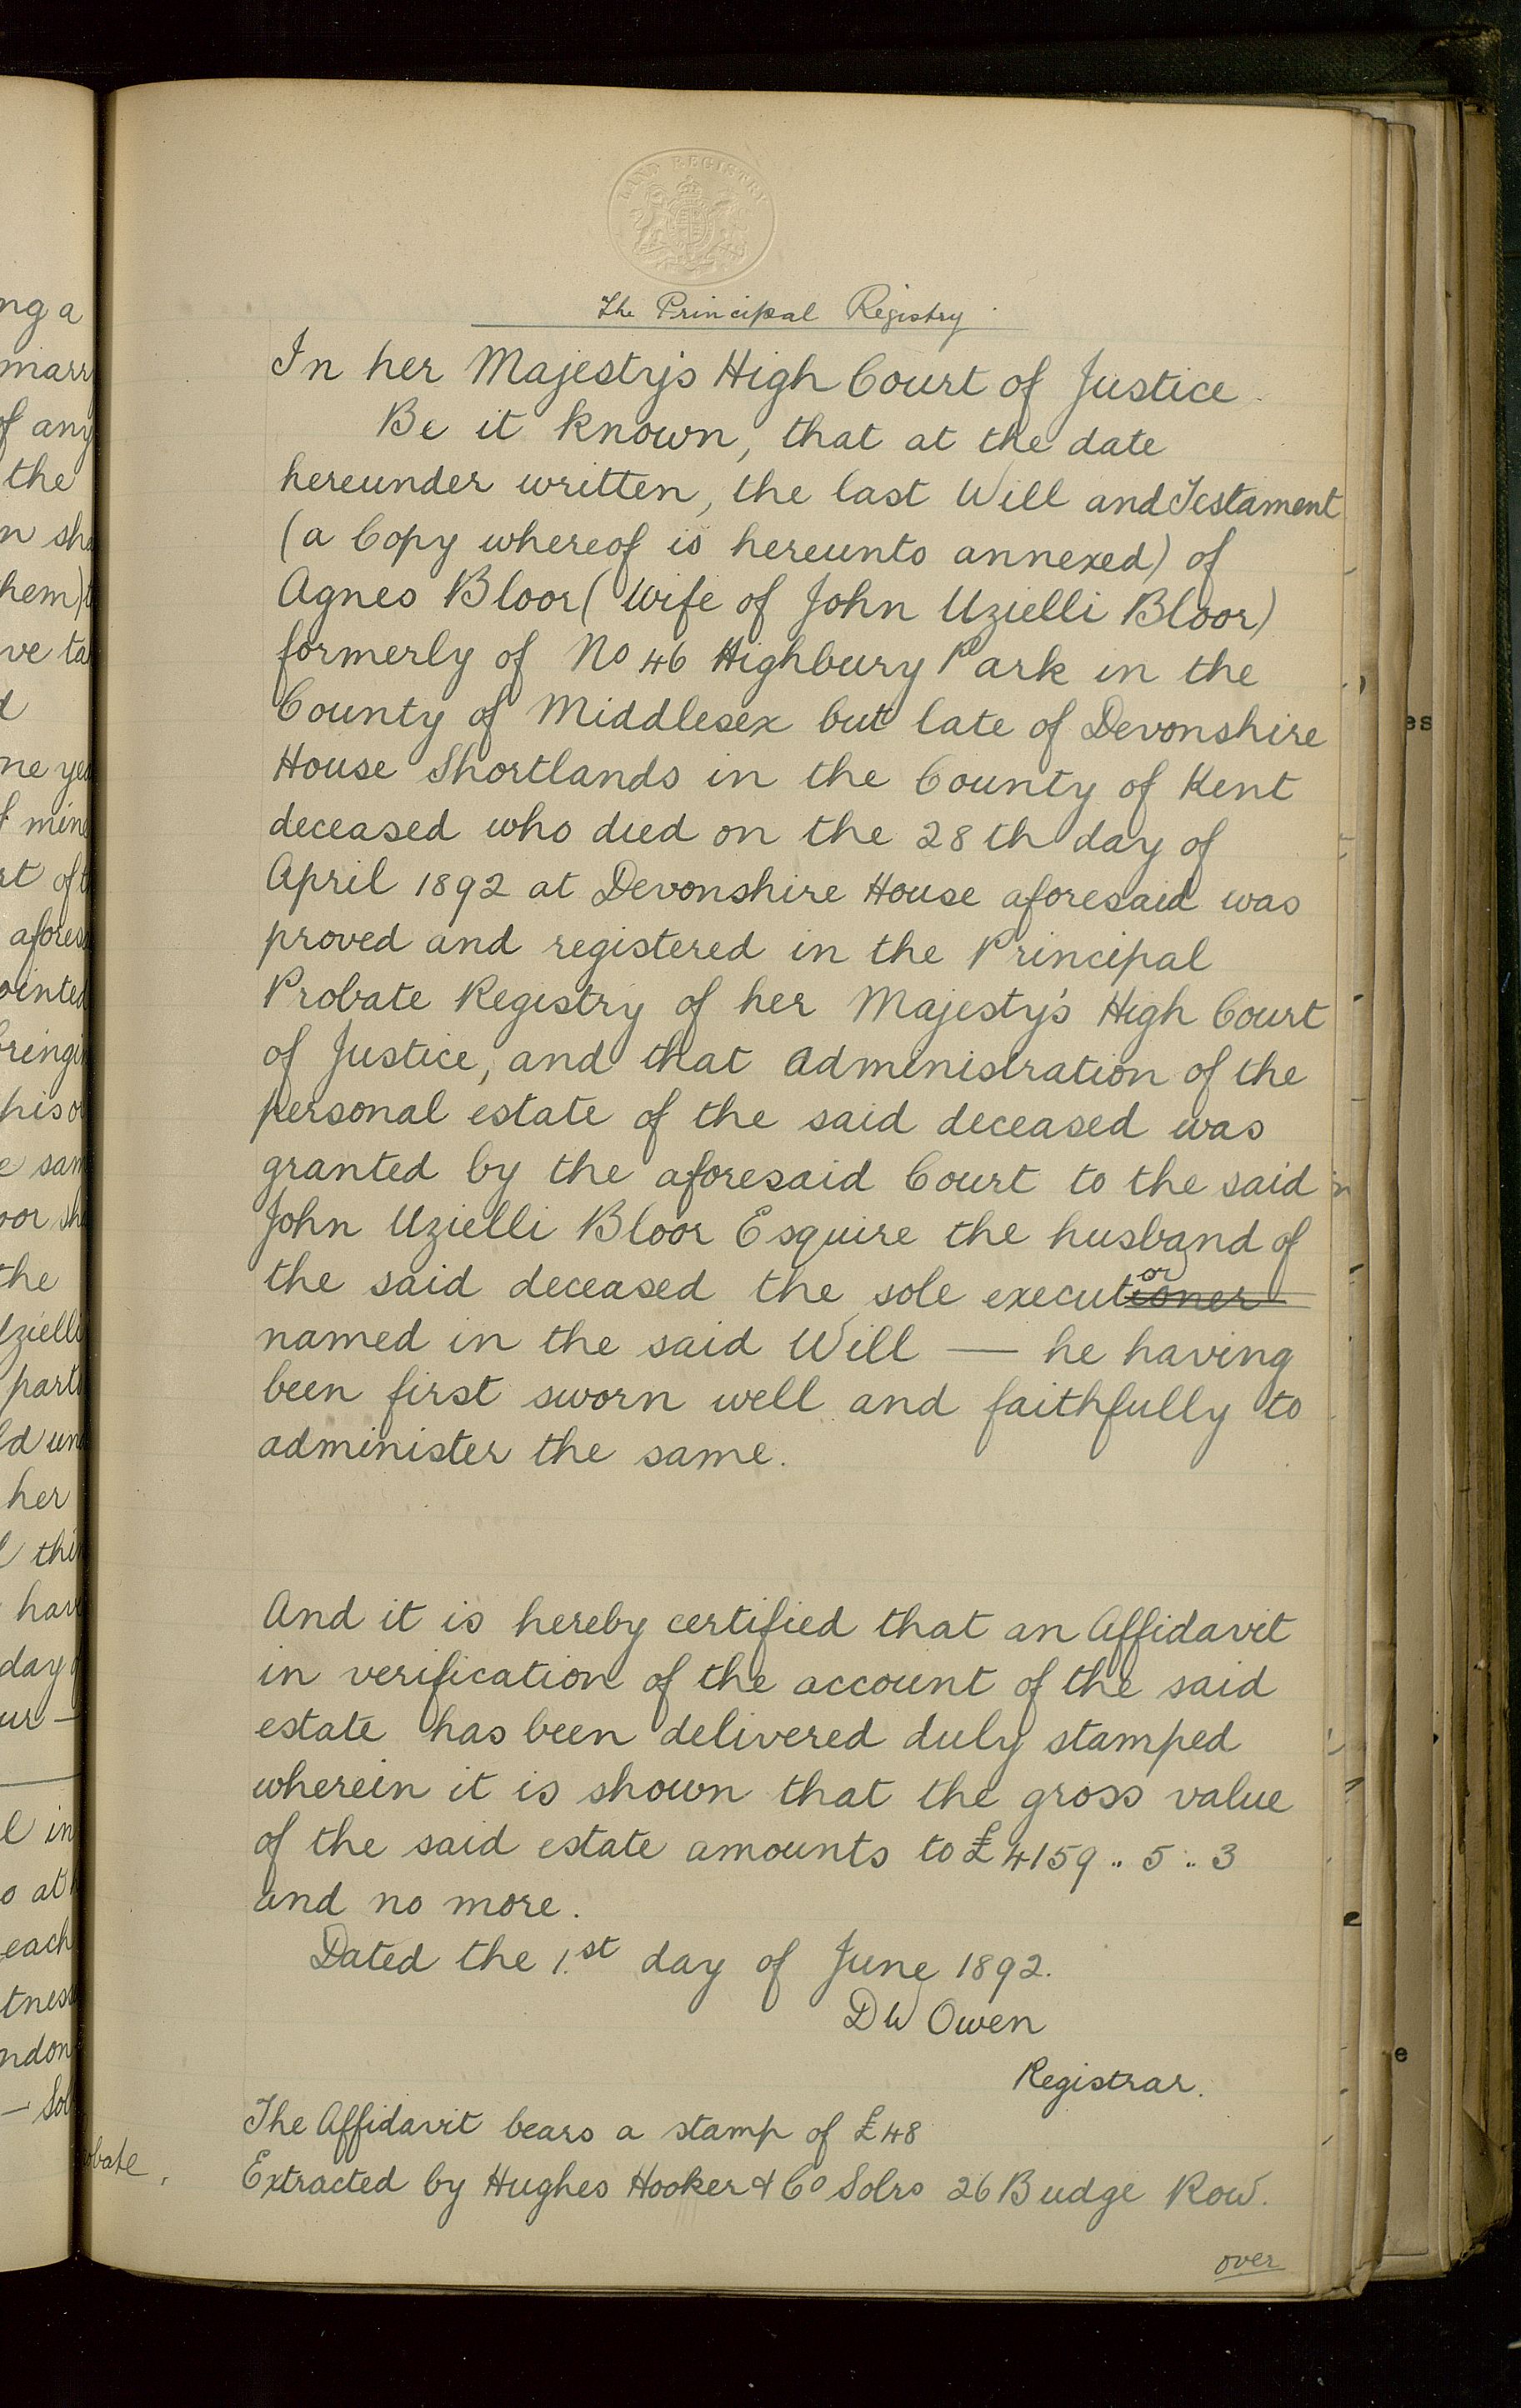 LAND REGISTRY
The Principal Registry
In her Majesty's High Court of Justice.
Be it known, that at the date
hereunder written, the last Will and Testament
(a Copy whereof is hereunto annexed) of
Agnes Bloor (Wife of John Uzielli Bloor)
formerly of No 46 Highbury Park in the
County of Middlesex but late of Devonshire
House Shortlands in the County of Kent
deceased who died on the 28th day of
April 1892 at Devonshire House aforesaid was
proved and registered in the Principal
Probate Registry of her Majesty's High Court
of Justice, and that Administration of the
personal estate of the said deceased was
granted by the aforesaid Court to the said
John Uzielli Bloor Esquire the husband of
or
the said deceased the sole executioner
named in the said Will — he having
been first sworn well and faithfully to
administer the same.
And it is hereby certified that an Affidavit
in verification of the account of the said
estate has been delivered duly stamped
wherein it is shown that the gross value
of the said estate amounts to £4159 .. 5 .. 3
and no more.
Dated the 1.st day of June 1892.
D W Owen
Registrar.
The Affidavit bears a stamp of £48
Extracted by Hughes Hooker & Co Solrs 26 Budge Row.
over